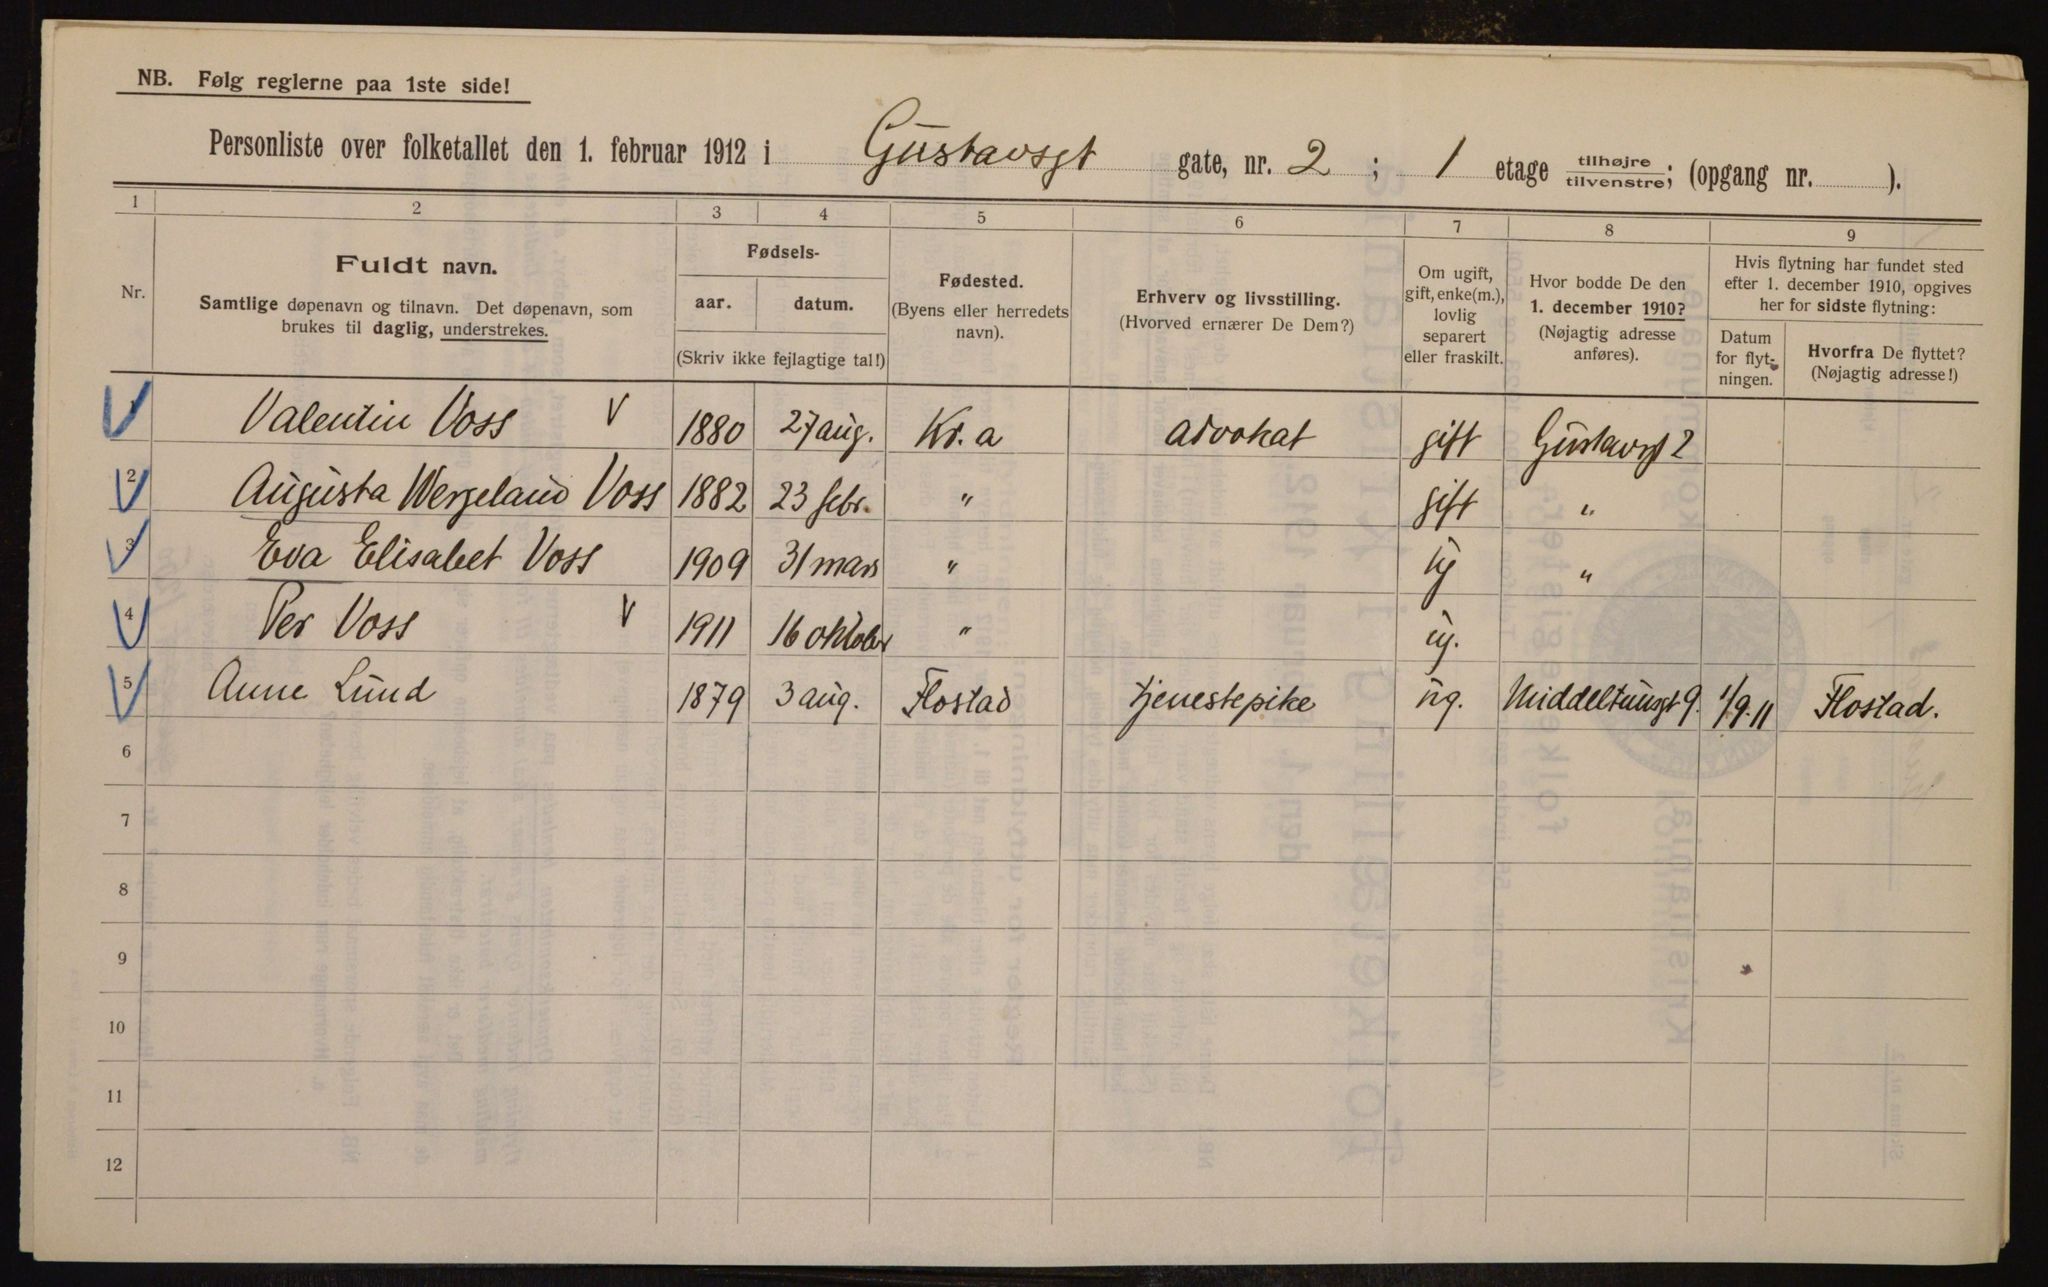 NB. Følg reglerne paa 1ste side!
Personliste over folketallet den 1. februar 1912 i Gustavsgt gate, nr. 2 ; 1 etage tilhøjre/tilvenstre; (opgang nr. ).
1 2 3 4 5 6 7 8 9
Nr.
Fuldt navn.
Samtlige døpenavn og tilnavn. Det døpenavn, som
brukes til daglig, understrekes.
Fødsels-
aar. datum.
(Skriv ikke fejlagtige tal!)
Fødested.
(Byens eller herredets
navn).
Erhverv og livsstilling.
(Hvorved ernærer De Dem?)
Om ugift,
gift, enke(m.),
lovlig
separert
eller fraskilt.
Hvor bodde De den
1. december 1910?
(Nøjagtig adresse
anføres).
Hvis flytning har fundet sted
efter 1. december 1910, opgives
her for sidste flytning:
Datum
for flyt-
ningen.
Hvorfra De flyttet?
(Nøjagtig adresse!)
1 Valentin Voss V 1880 27 aug. Kr.a advokat gift Gustavsgt 2
2 Augusta Wergeland Voss 1882 23 febr. " gift "
3 Eva Elisabet Voss 1909 31 mars " ug "
4 Per Voss V 1911 16 oktober " ug.
5 Anne Lund 1879 3 aug. Flostad tjenestepike ug. Middeltunsgt 9. 1/9.11 Flostad.
6
7
8
9
10
11
12